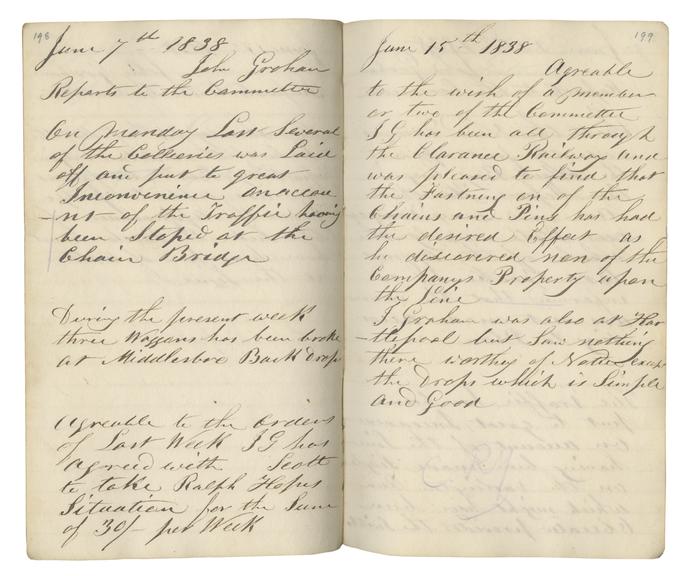 198
June 7th 1838
John Graham
Reports to the Committee
On Monday Last Several
of the Collieries was Laid
off and put to great
Inconvenience on accou
-nt of the Traffic having
been Stoped at the
Chain Bridge
During the present week
three Waggons has been broke
at Middlesbro Back Drops
Agreable to the orders
of Last Week JG has
agreed with Scott
to take Ralph Hopes
Situation for the Sum
of 30/- per Week
199
June 15th 1838
Agreable
to the wish of a member
or two of the Committee
JG has been all through
the Clarance Railway and
was pleased to find that
the Fastning on of the
Chains and Pins has had
the desired Effect as
he discovered non of the
Companys Property upon
the Line
J Graham was also at Har
-tlepool but Saw nothing
there worthy of Notice except
the Drops which is Simple
and Good